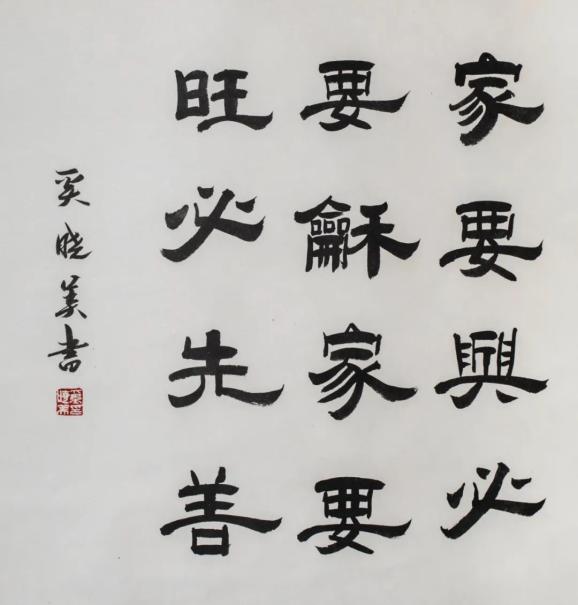 家要興必
要龢家要
旺必先善
奚曉美書